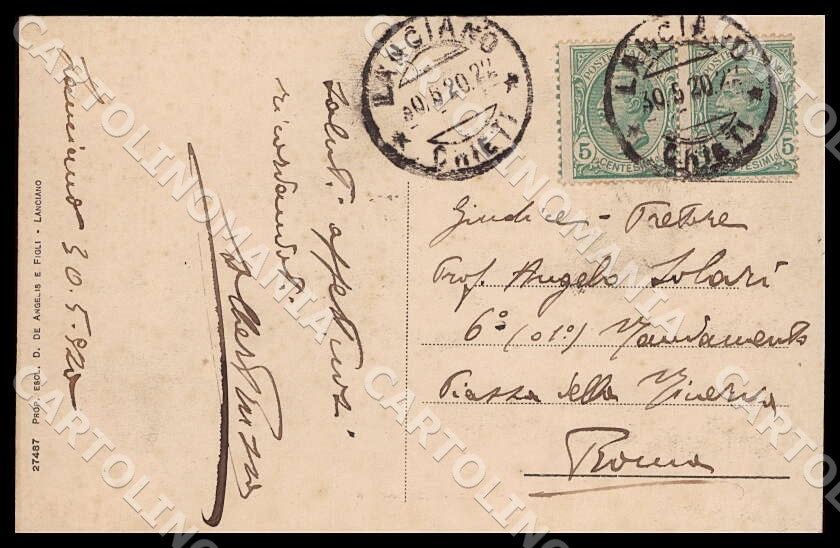 LANCIANO
30.5.20.22
CHIETI
LANCIANO
30.5.20.22
CHIETI
POSTE
5
CENTESIMI
5
Lanciano 30.5.920
Saluti affettuosi
ricordandoti
Giudice - Pretore
Prof. Angelo Solari
6° (o 1°) Mandamento
Piazza della Minerva
Roma
27487 PROP. ESCL. D. DE ANGELIS E FIGLI - LANCIANO
CARTOLINOMANIA